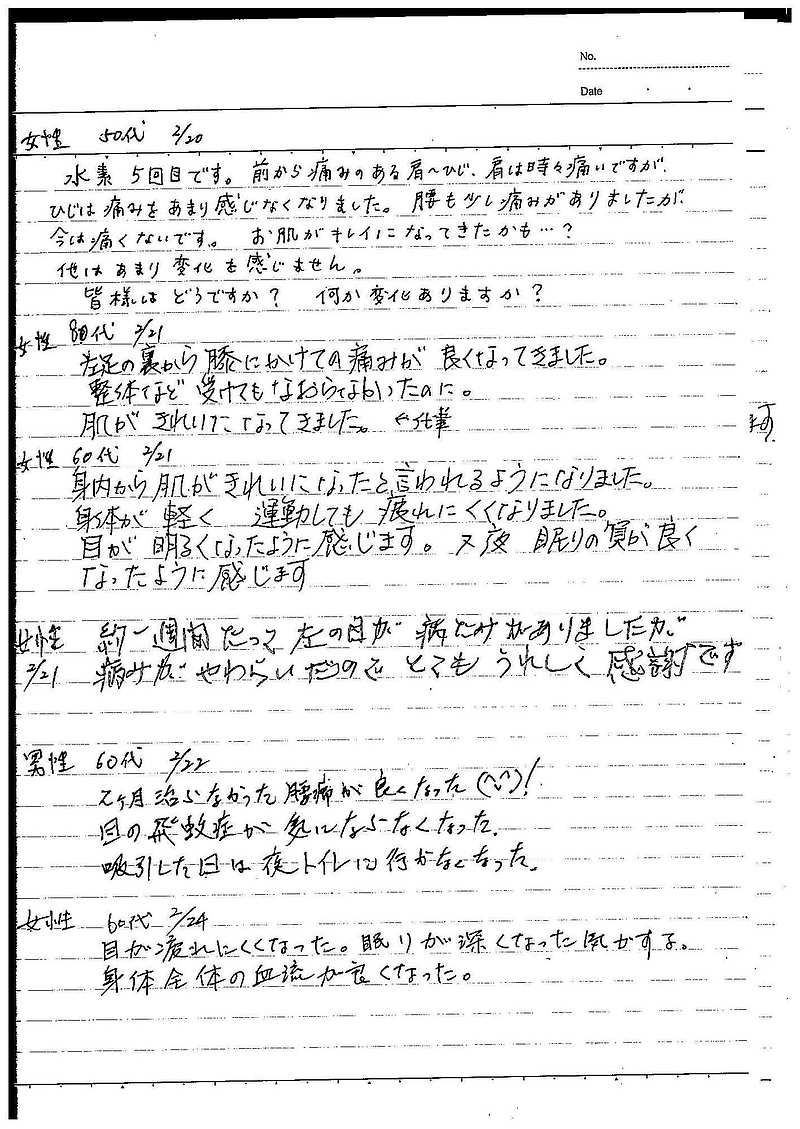 No.
Date
女性 50代 2/20
水素 5回目です。前から痛みのある肩〜ひじ、肩は時々痛いですが、
ひじは痛みをあまり感じなくなりました。腰も少し痛みがありましたが、
今は痛くないです。 お肌がキレイになってきたかも…?
他はあまり変化を感じません。
皆様はどうですか? 何か変化ありますか?
女性 80代 2/21
左足の裏から膝にかけての痛みが良くなってきました。
整体など受けてもなおらなかったのに。
肌がきれいになってきました。
女性 60代 2/21
身内から肌がきれいになったと言われるようになりました。
身体が軽く 運動しても疲れにくくなりました。
目が明るくなったように感じます。又夜 眠りの質が良く
なったように感じます
女性 約一週間たって左の目が病たみがありましたが
2/21 病みがやわらいだので とてもうれしく感謝です
男性 60代 2/22
2ヶ月治らなかった腰痛が良くなった(^^)!
目の飛蚊症が気にならなくなった。
吸引した日は夜トイレに行かなくなった。
女性 60代 2/24
目が疲れにくくなった。眠りが深くなった気がする。
身体全体の血流が良くなった。